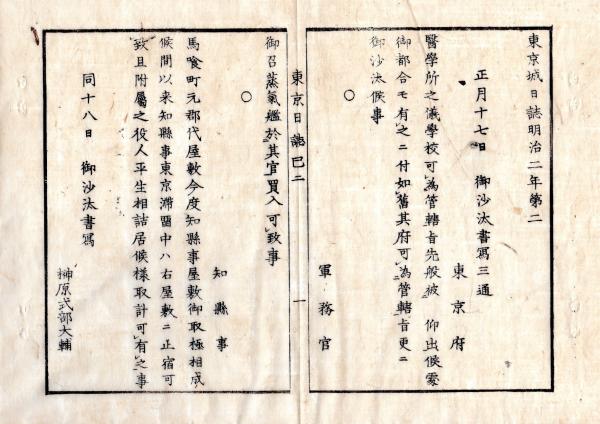 東京城日誌明治二年第二
正月十七日 御沙汰書寫三通
東京府
醫學所之儀學校可為管轄旨先般被 仰出候處
御都合モ有之ニ付如舊其府可為管轄旨更ニ
御沙汰候事
○
軍務官
東京日誌巳二 一
御召蒸氣艦於其官買入可致事
○
知縣事
馬喰町元郡代屋敷今度知縣事屋敷御取極相成
候間以来知縣事東京滞留中ハ右屋敷ニ止宿可
致且附屬之役人平生相詰居候樣取計可有之事
同十八日 御沙汰書寫
榊原式部大輔